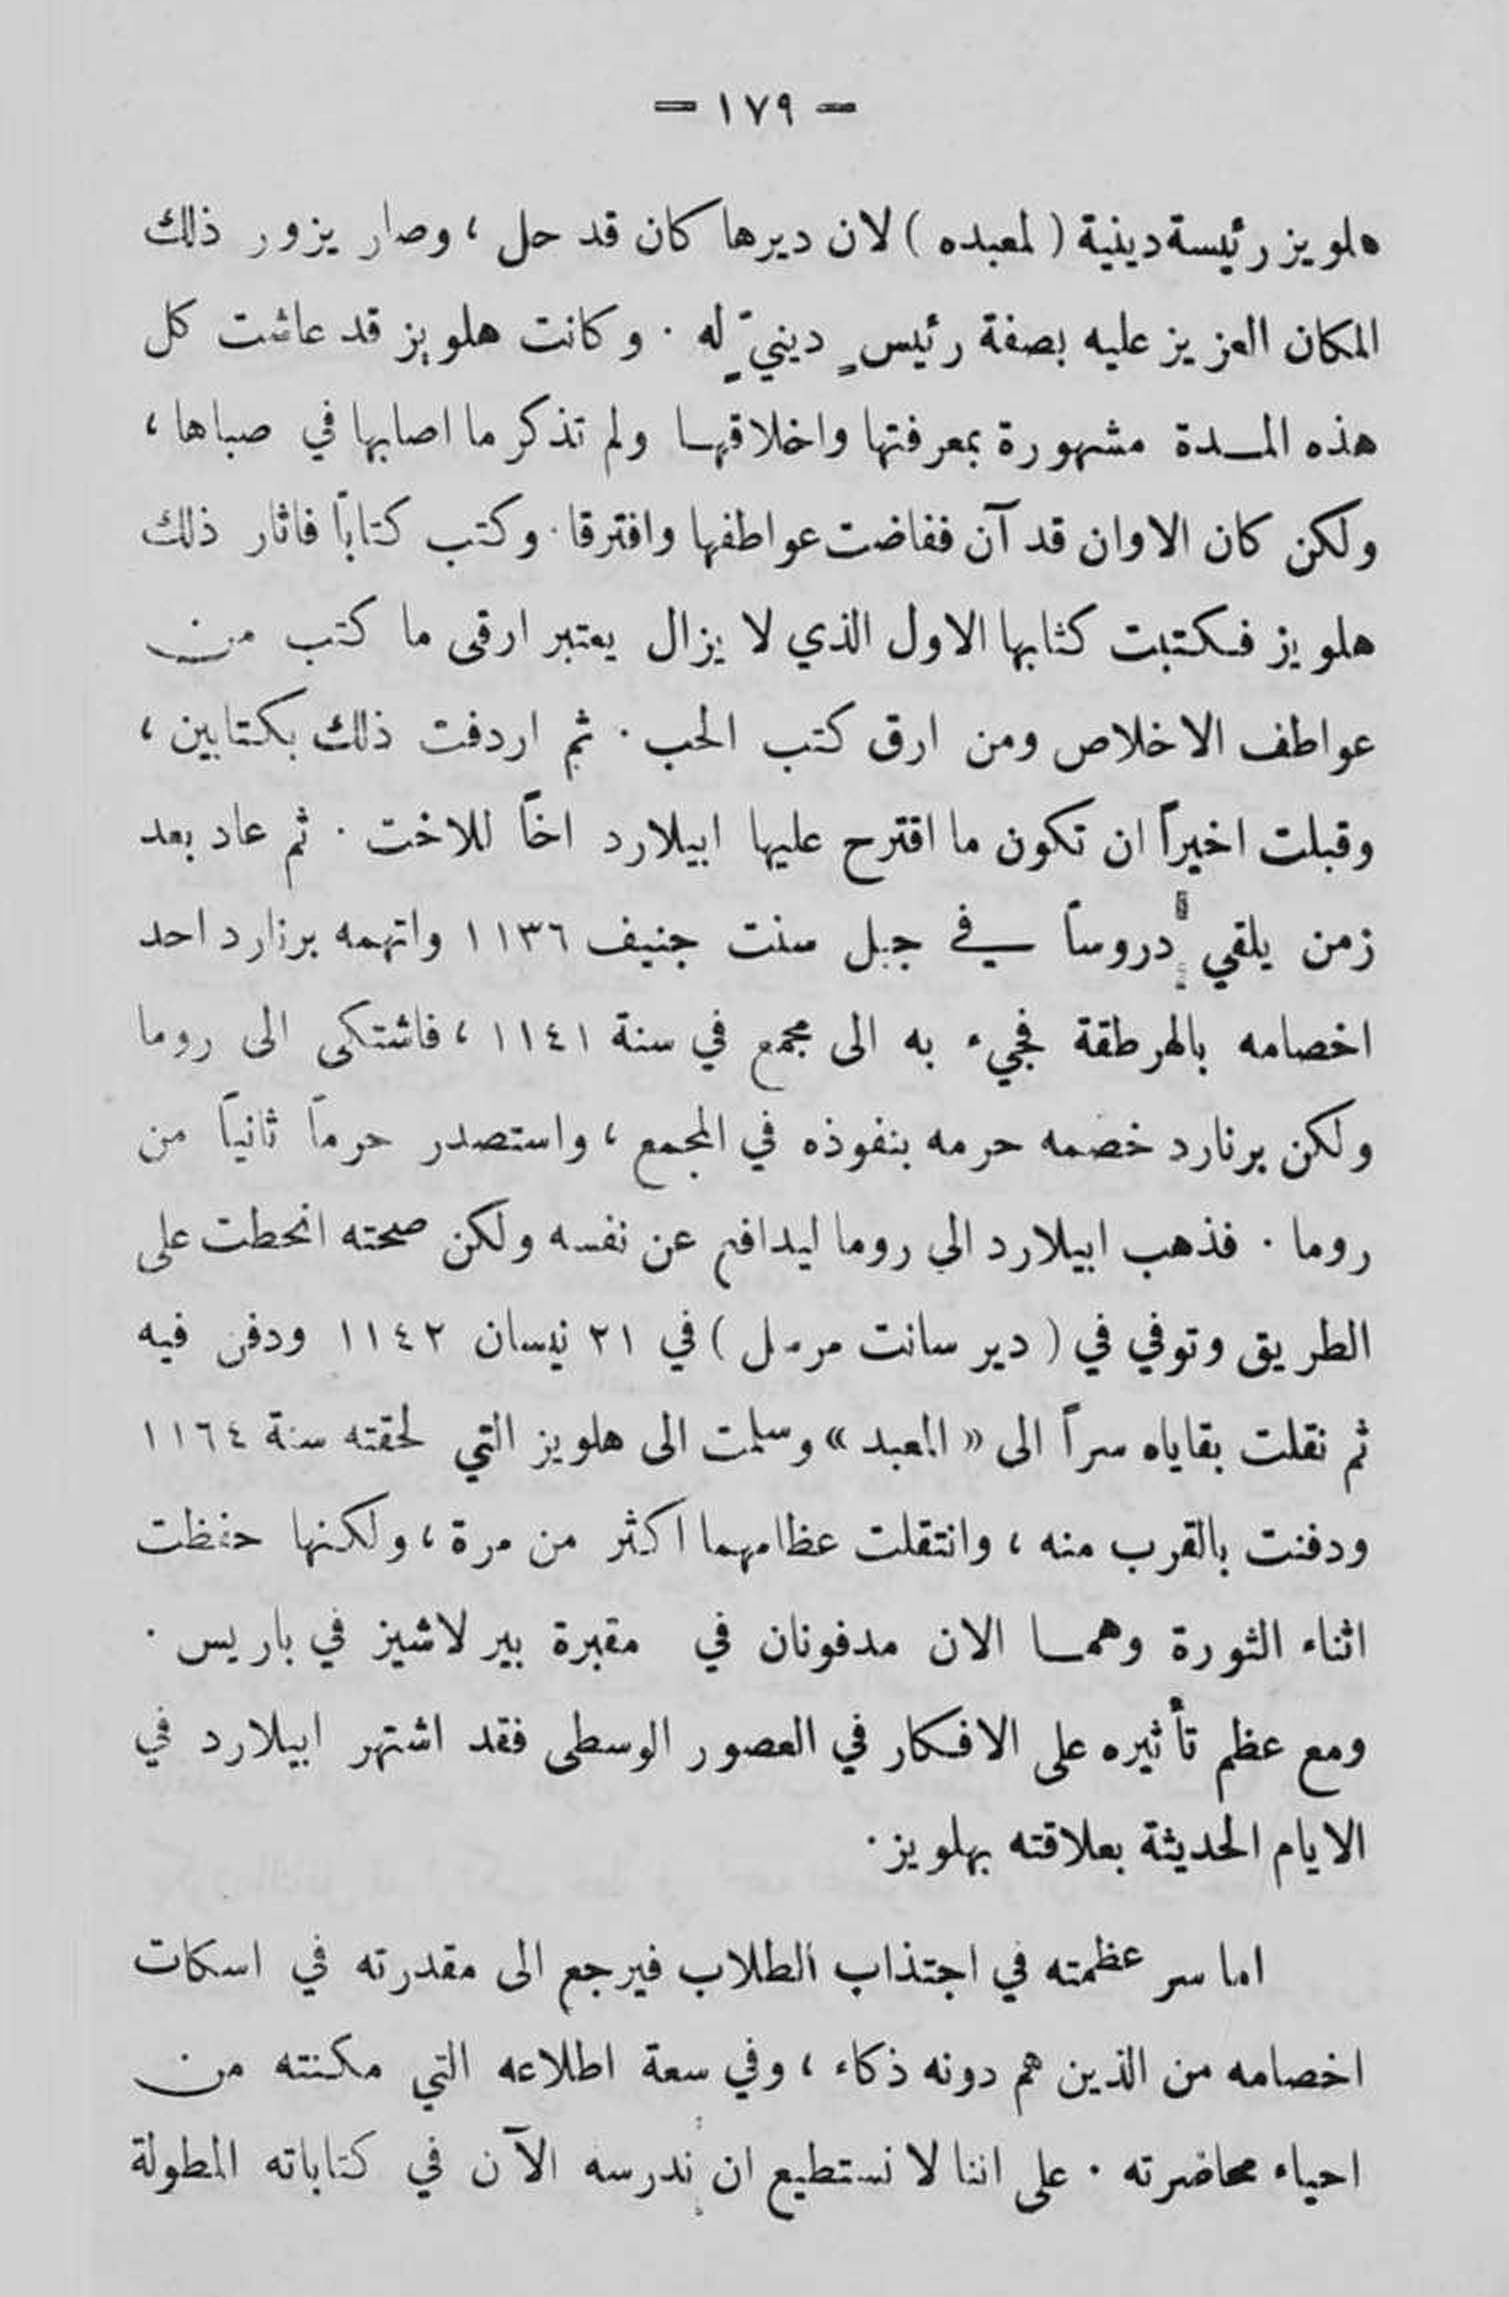 = ١٧٩ =
هلويز رئيسة دينية ( لمعبده ) لان ديرها كان قد حل ، وصار يزور ذلك
المكان العزيز عليه بصفة رئيسٍ دينيٍّ له . وكانت هلويز قد عاشت كل
هذه المدة مشهورة بمعرفتها واخلاقها ولم تذكر ما اصابها في صباها ،
ولكن كان الاوان قد آن ففاضت عواطفها وافترقا . وكتب كتاباً فاثار ذلك
هلويز فكتبت كتابها الاول الذي لا يزال يعتبر ارقى ما كتب من
عواطف الاخلاص ومن ارق كتب الحب . ثم اردفت ذلك بكتابين ،
وقبلت اخيراً ان تكون ما اقترح عليها ابيلارد اخاً للاخت . ثم عاد بعد
زمن يلقي دروساً في جبل سنت جنيف ١١٣٦ واتهمه برنارد احد
اخصامه بالهرطقة فجيء به الى مجمع في سنة ١١٤١ ، فاشتكى الى روما
ولكن برنارد خصمه حرمه بنفوذه في المجمع ، واستصدر حرماً ثانياً من
روما . فذهب ابيلارد الي روما ليدافع عن نفسه ولكن صحته انحطت على
الطريق وتوفي في ( دير سانت مرسل ) في ٢١ نيسان ١١٤٢ ودفن فيه
ثم نقلت بقاياه سراً الى « المعبد » وسلمت الى هلويز التي لحقته سنة ١١٦٤
ودفنت بالقرب منه ، وانتقلت عظامهما اكثر من مرة ، ولكنها حفظت
اثناء الثورة وهما الان مدفونان في مقبرة بير لاشيز في باريس .
ومع عظم تأثيره على الافكار في العصور الوسطى فقد اشتهر ابيلارد في
الايام الحديثة بعلاقته بهلويز .
اما سر عظمته في اجتذاب الطلاب فيرجع الى مقدرته في اسكات
اخصامه من الذين هم دونه ذكاء ، وفي سعة اطلاعه التي مكنته من
احياء محاضرته . على اننا لا نستطيع ان ندرسه الآن في كتاباته المطولة